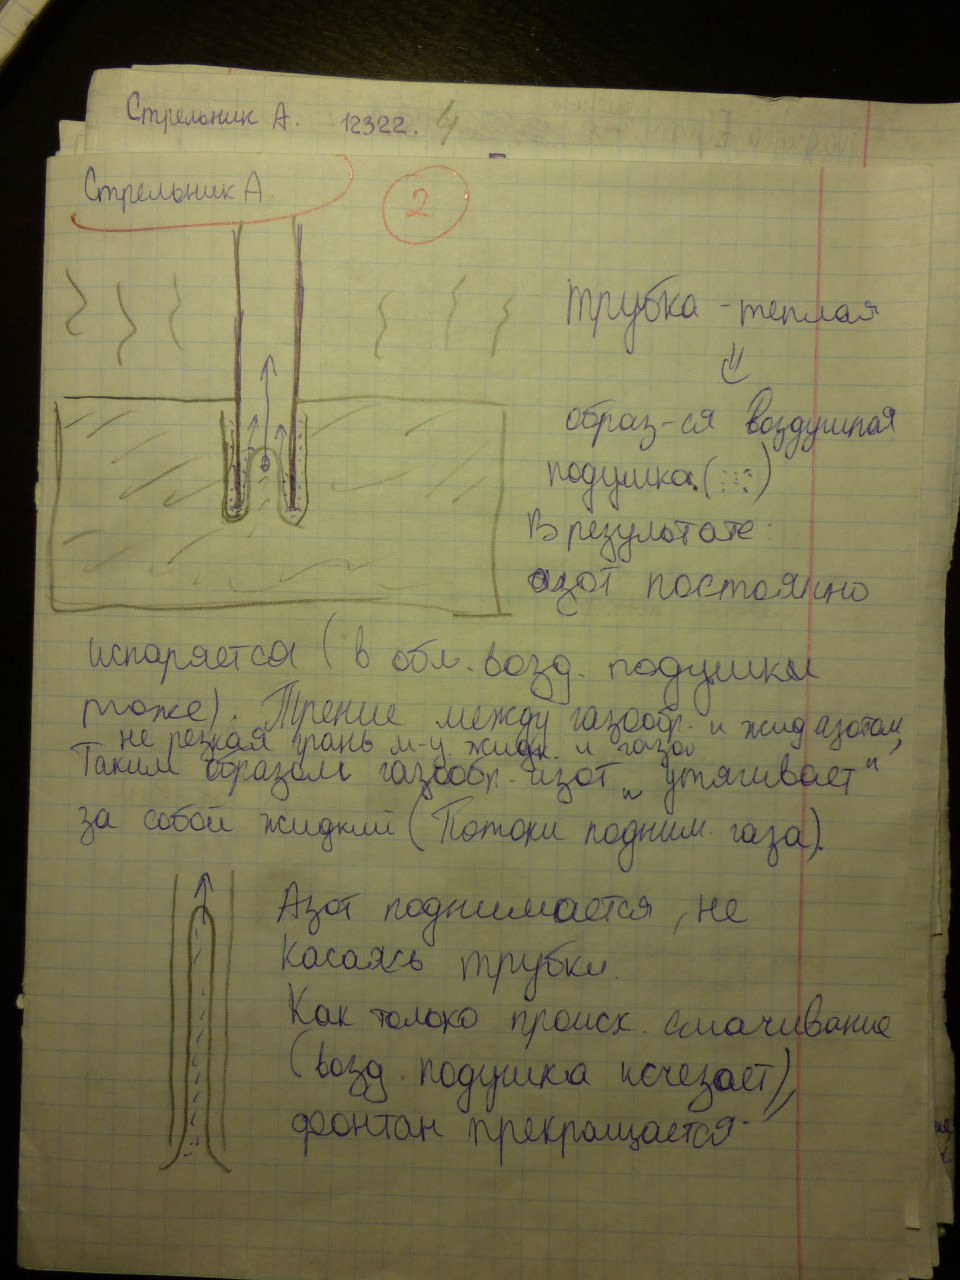 Стрельник А. 12322. 4
Стрельник А.
2
трубка - теплая
⇓
образ-ся воздушная
подушка. (:::)
В результате:
азот постоянно
испаряется (в обл. возд. подушки
тоже). Трение между газообр. и жид азотом,
не резкая грань м-у жидк. и газом
Таким образом газообр. азот „утягивает"
за собой жидкий (Потоки подним. газа).
Азот поднимается, не
касаясь трубки.
Как только происх. смачивание
(возд. подушка исчезает),
фонтан прекращается